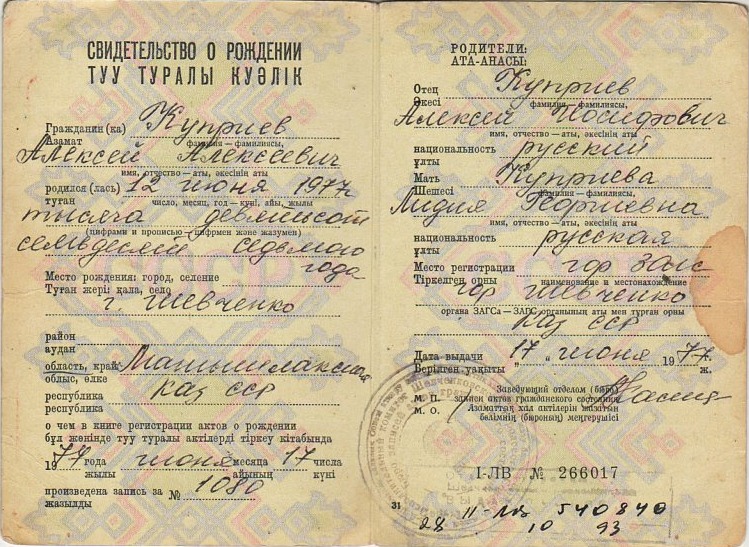 СВИДЕТЕЛЬСТВО О РОЖДЕНИИ
ТУУ ТУРАЛЫ КУӘЛІК
Гражданин (ка) Куприев
Азамат фамилия — фамилиясы,
Алексей Алексеевич
имя, отчество — аты, әкесінің аты
родился (лась) 12 июня 1977
туған число, месяц, год — күні, айы, жылы
тысяча девятьсот
(цифрами и прописью — цифрмен және жазумен)
семьдесят седьмого
года
Место рождения: город, селение
Туған жері: қала, село
г. Шевченко
район
аудан
область, край Мангышлакская
облыс, өлке
республика Каз ССР
республика
о чем в книге регистрации актов о рождении
бұл жөнінде туу туралы актілерді тіркеу кітабында
1977 года июня месяца 17 числа
жылы айының күні
произведена запись за № 1080
жазылды
РОДИТЕЛИ:
АТА-АНАСЫ:
Отец Куприев
Әкесі фамилия — фамилиясы,
Алексей Иосифович
имя, отчество — аты, әкесінің аты
национальность русский
ұлты
Мать Куприева
Шешесі фамилия — фамилиясы,
Лидия Георгиевна
имя, отчество — аты, әкесінің аты
национальность русская
ұлты
Место регистрации гор ЗАГС
Тіркелген орны наименование и местонахождение
гор Шевченко
органа ЗАГСа — ЗАГС органының аты мен тұрған орны
Каз ССР
Дата выдачи "17" июня 1977 г.
Берілген уақыты ж.
Заведующий отделом (бюро)
М. П. записи актов гражданского состояния
М. О. Азаматтық хал актілерін жазатын
бөлімнің (бюроның) меңгерушісі
I-ЛВ № 266017
31
II-ЛВ 540840
28 10 93